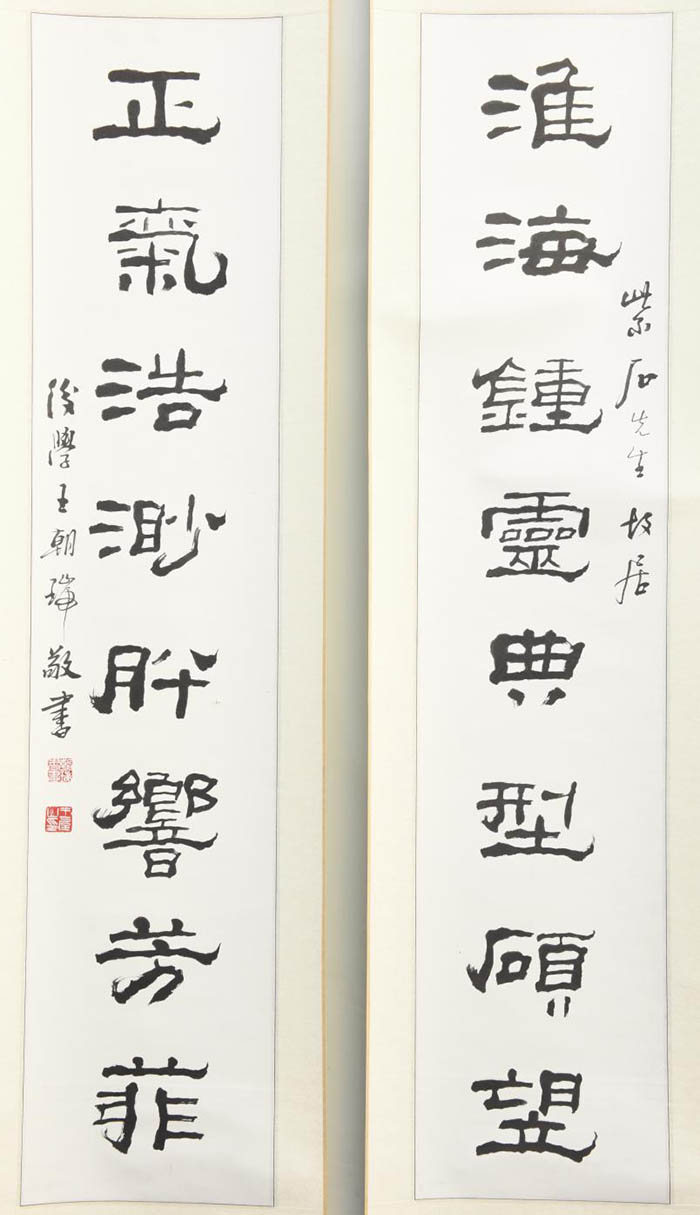 淮海鍾靈典型碩望
紫石先生故居
正氣浩渺肸響芳菲
後學王朝瑞敬書